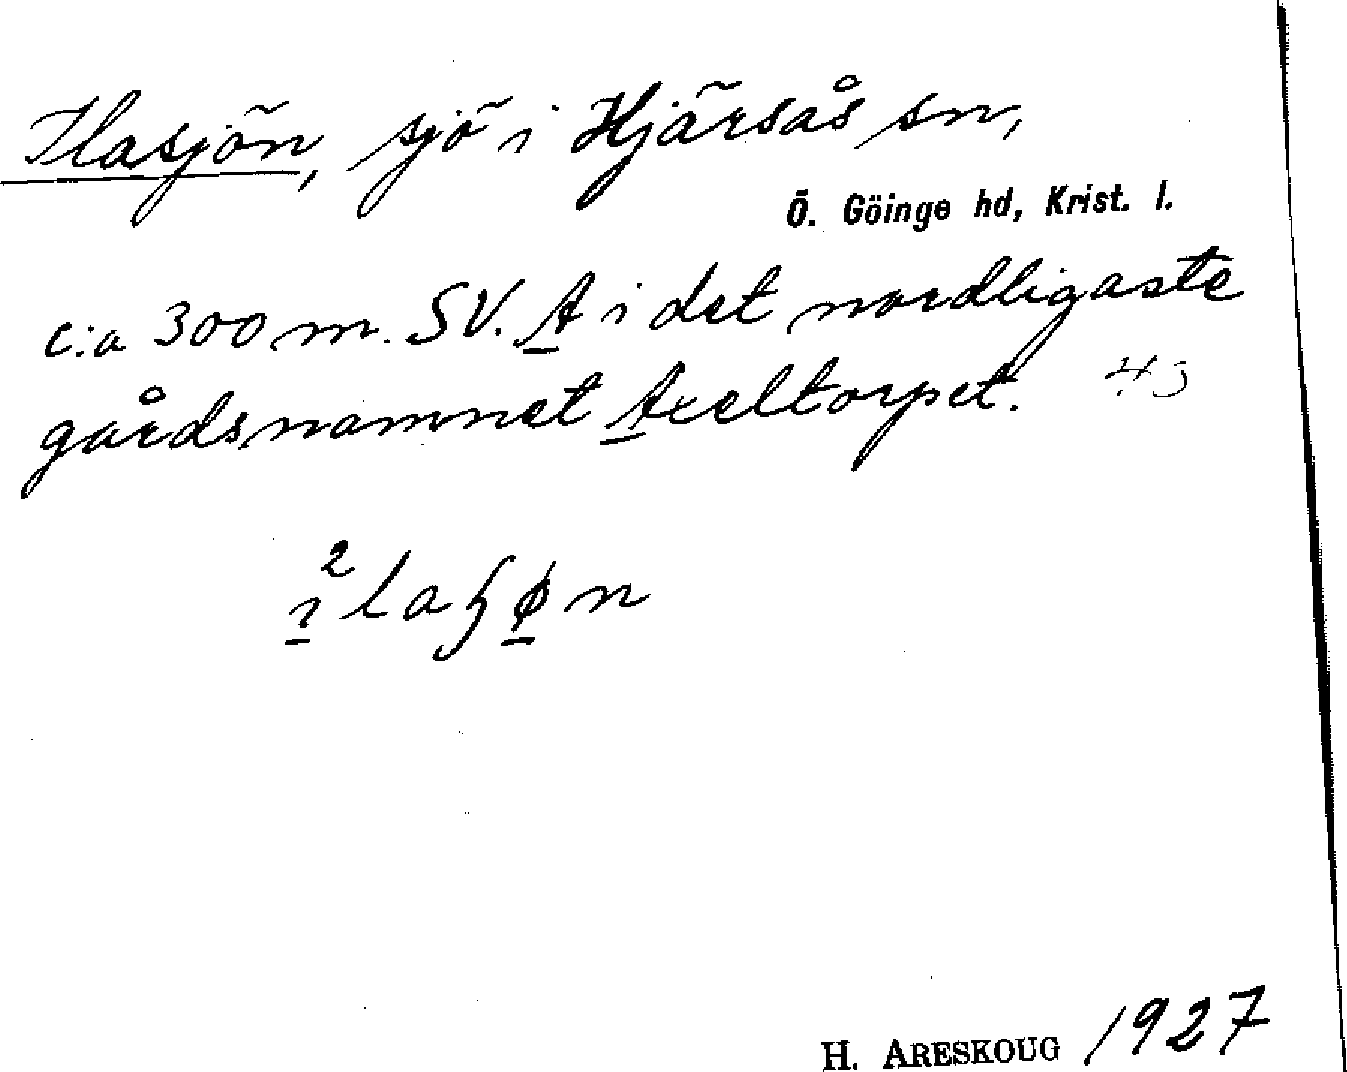 Ilasjön, sjö i Hjärsås sn,
Ö. Göinge hd, Krist. l.
c:a 300 m. SV. A i det nordligaste
gårdsnamnet Axeltorpet. 43
H. ARESKOUG 1927